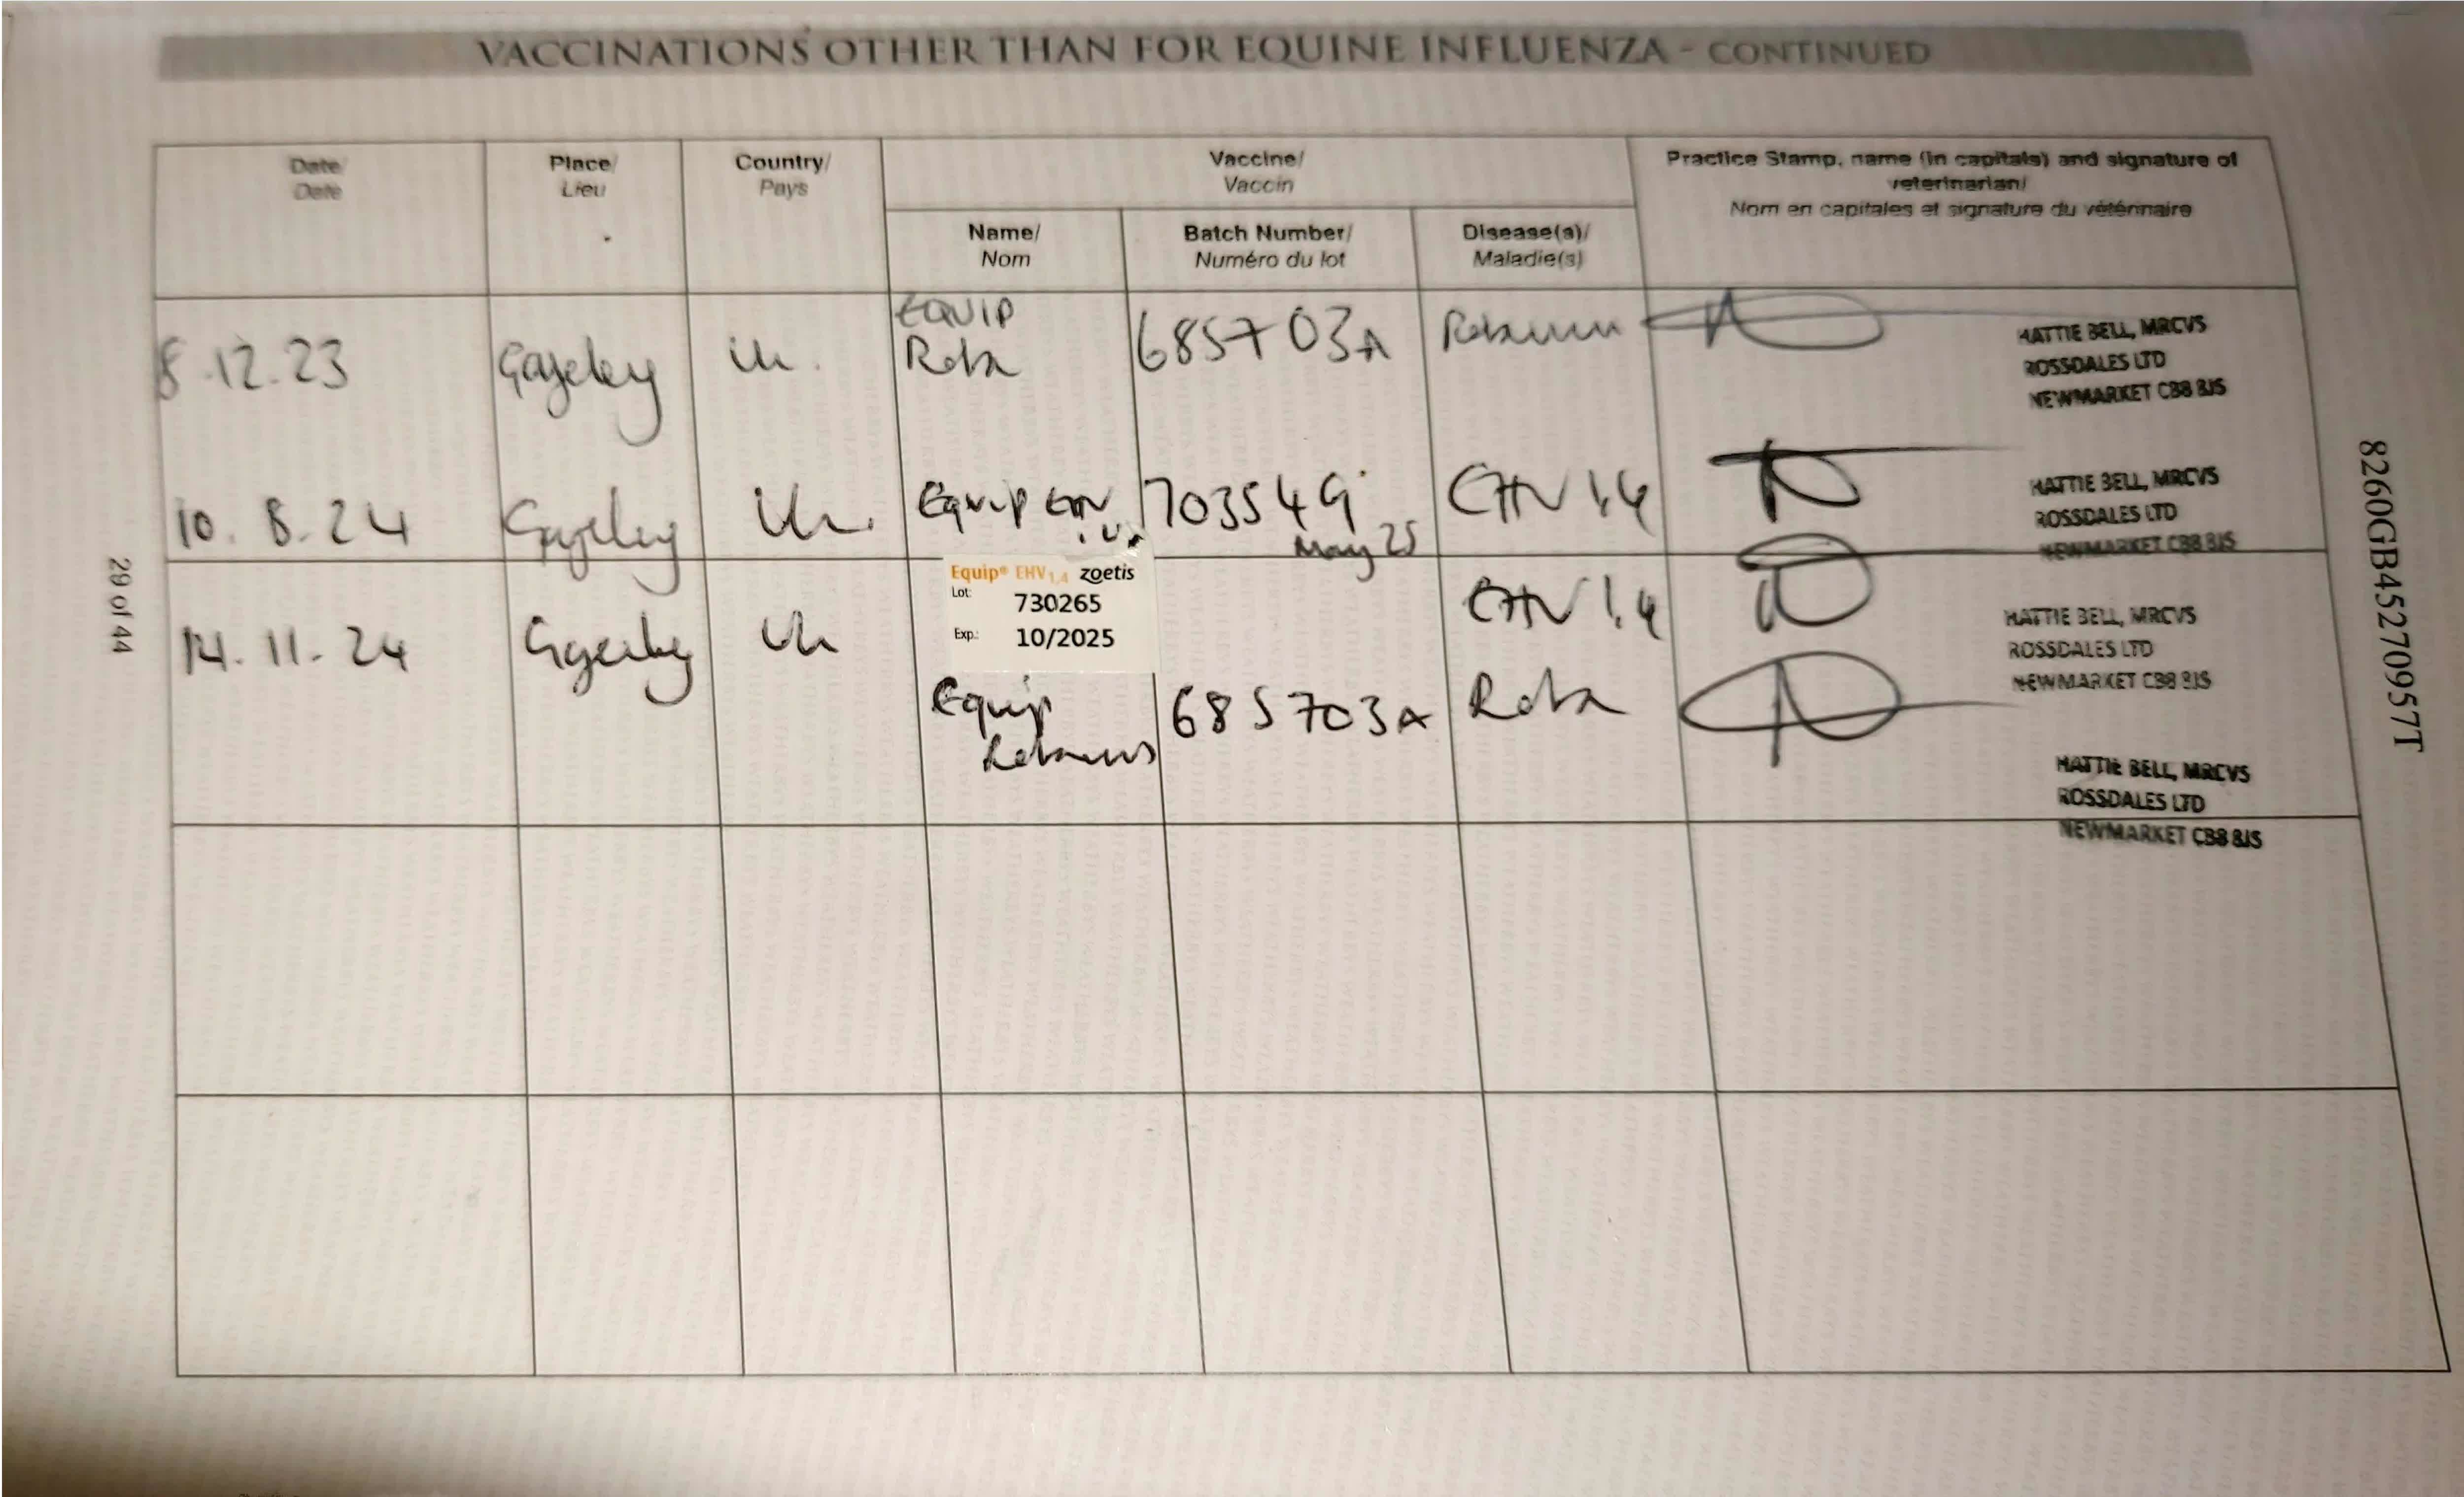 VACCINATIONS OTHER THAN FOR EQUINE INFLUENZA - CONTINUED
Date/
Date
Place/
Lieu
Country/
Pays
Vaccine/
Vaccin
Name/
Nom
Batch Number/
Numéro du lot
Disease(s)/
Maladie(s)
Practice Stamp, name (in capitals) and signature of
veterinarian/
Nom en capitales et signature du vétérinaire
8.12.23 Gazeley Uk. EQUIP
Rota 685703A
HATTIE BELL, MRCVS
ROSSDALES LTD
NEWMARKET CB8 8JS
10.8.24 Gazeley Uk. Equip EHV 1.4 703549 EHV 1.4
May 25
HATTIE BELL, MRCVS
ROSSDALES LTD
NEWMARKET CB8 8JS
14.11.24 Gazeley Uk
Equip® EHV1,4 zoetis
Lot: 730265
Exp.: 10/2025
EHV 1.4
HATTIE BELL, MRCVS
ROSSDALES LTD
NEWMARKET CB8 8JS
Equip
Rotavirus 685703A Rota
HATTIE BELL, MRCVS
ROSSDALES LTD
NEWMARKET CB8 8JS
29 of 44
8260GB45270957T